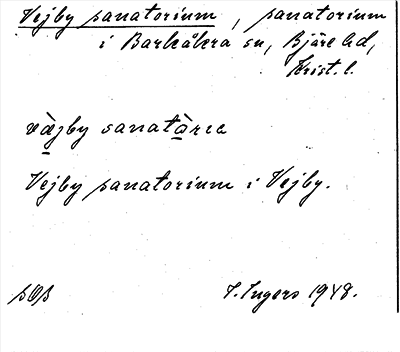 Vejby sanatorium, sanatorium
i Barkåkra sn, Bjäre hd,
Krist. l.
vä̀jby sanatà̱rɩe
Vejby sanatorium i Vejby.
I. Ingers 1948.